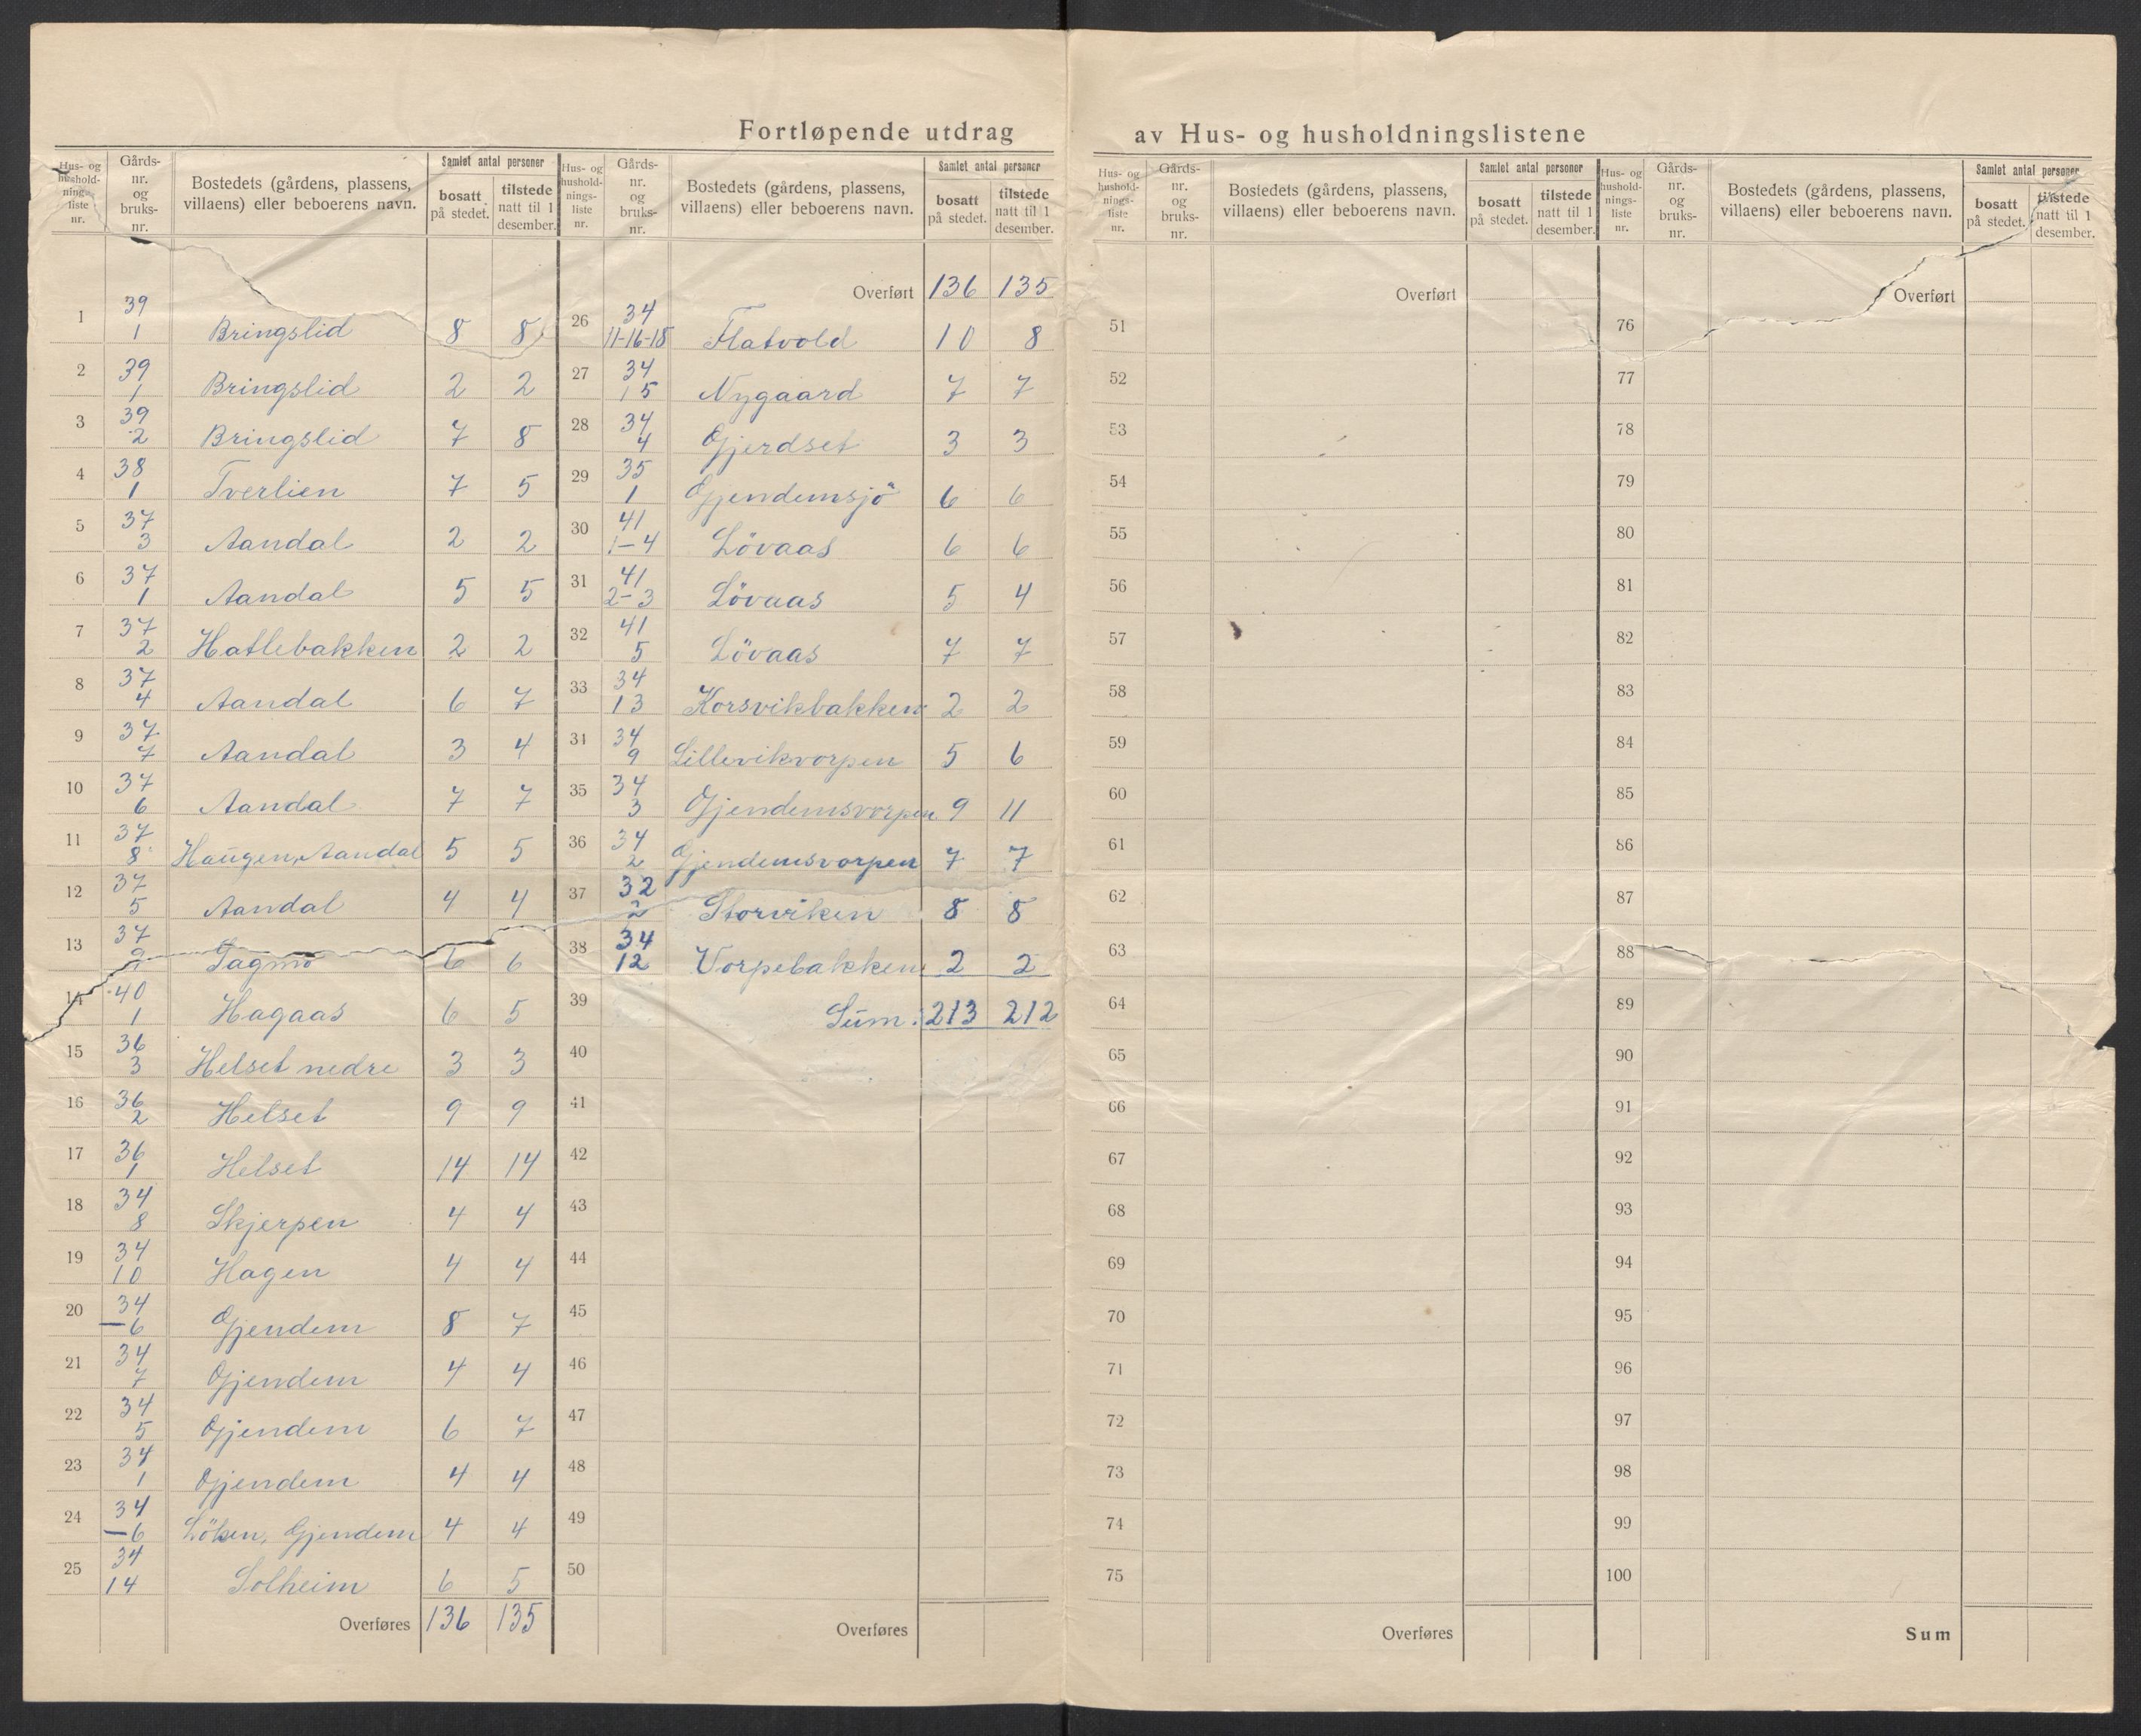 Fortløpende utdrag av Hus- og husholdningslistene
Hus- og hushold-nings-liste nr. | Gårds-nr. og bruks-nr. | Bostedets (gårdens, plassens, villaens) eller beboerens navn. | Samlet antal personer | bosatt på stedet. | tilstede natt til 1 desember.
1 | 39 1 | Bringslid | 8 | 8
2 | 39 1 | Bringslid | 2 | 2
3 | 39 2 | Bringslid | 7 | 8
4 | 38 1 | Tverlien | 7 | 5
5 | 37 3 | Aandal | 2 | 2
6 | 37 1 | Aandal | 5 | 5
7 | 37 2 | Hatlebakken | 2 | 2
8 | 37 4 | Aandal | 6 | 7
9 | 37 7 | Aandal | 3 | 4
10 | 37 6 | Aandal | 7 | 7
11 | 37 8 | Haugen, Aandal | 5 | 5
12 | 37 5 | Aandal | 4 | 4
13 | 37 9 | Sagmo | 6 | 6
14 | 40 1 | Hagaas | 6 | 5
15 | 36 3 | Helset nedre | 3 | 3
16 | 36 2 | Helset | 9 | 9
17 | 36 1 | Helset | 14 | 14
18 | 34 8 | Skjerpen | 4 | 4
19 | 34 10 | Hagen | 4 | 4
20 | 34 —6 | Gjendem | 8 | 7
21 | 34 7 | Gjendem | 4 | 4
22 | 34 5 | Gjendem | 6 | 7
23 | 34 1 | Gjendem | 4 | 4
24 | 34 —6 | Löken, Gjendem | 4 | 4
25 | 34 14 | Solheim | 6 | 5
Overføres | 136 | 135
Hus- og hushold-nings-liste nr. | Gårds-nr. og bruks-nr. | Bostedets (gårdens, plassens, villaens) eller beboerens navn. | Samlet antal personer | bosatt på stedet. | tilstede natt til 1 desember.
Overført | 136 | 135
26 | 34 11-16-18 | Flatvold | 10 | 8
27 | 34 15 | Nygaard | 7 | 7
28 | 34 4 | Gjerdset | 3 | 3
29 | 35 1 | Gjendemsjö | 6 | 6
30 | 41 1-4 | Lövaas | 6 | 6
31 | 41 2-3 | Lövaas | 5 | 4
32 | 41 5 | Lövaas | 7 | 7
33 | 34 13 | Korsvikbakken | 2 | 2
34 | 34 9 | Lillevikvorpen | 5 | 6
35 | 34 3 | Gjendemsvorpen | 9 | 11
36 | 34 2 | Gjendemsvorpen | 7 | 7
37 | 32 2 | Storviken | 8 | 8
38 | 34 12 | Vorpebakken | 2 | 2
39 | Sum: | 213 | 212
40
41
42
43
44
45
46
47
48
49
50
Overføres
Hus- og hushold-nings-liste nr. | Gårds-nr. og bruks-nr. | Bostedets (gårdens, plassens, villaens) eller beboerens navn. | Samlet antal personer | bosatt på stedet. | tilstede natt til 1 desember.
Overført
51
52
53
54
55
56
57
58
59
60
61
62
63
64
65
66
67
68
69
70
71
72
73
74
75
Overføres
Hus- og hushold-nings-liste nr. | Gårds-nr. og bruks-nr. | Bostedets (gårdens, plassens, villaens) eller beboerens navn. | Samlet antal personer | bosatt på stedet. | tilstede natt til 1 desember.
Overført
76
77
78
79
80
81
82
83
84
85
86
87
88
89
90
91
92
93
94
95
96
97
98
99
100
Sum